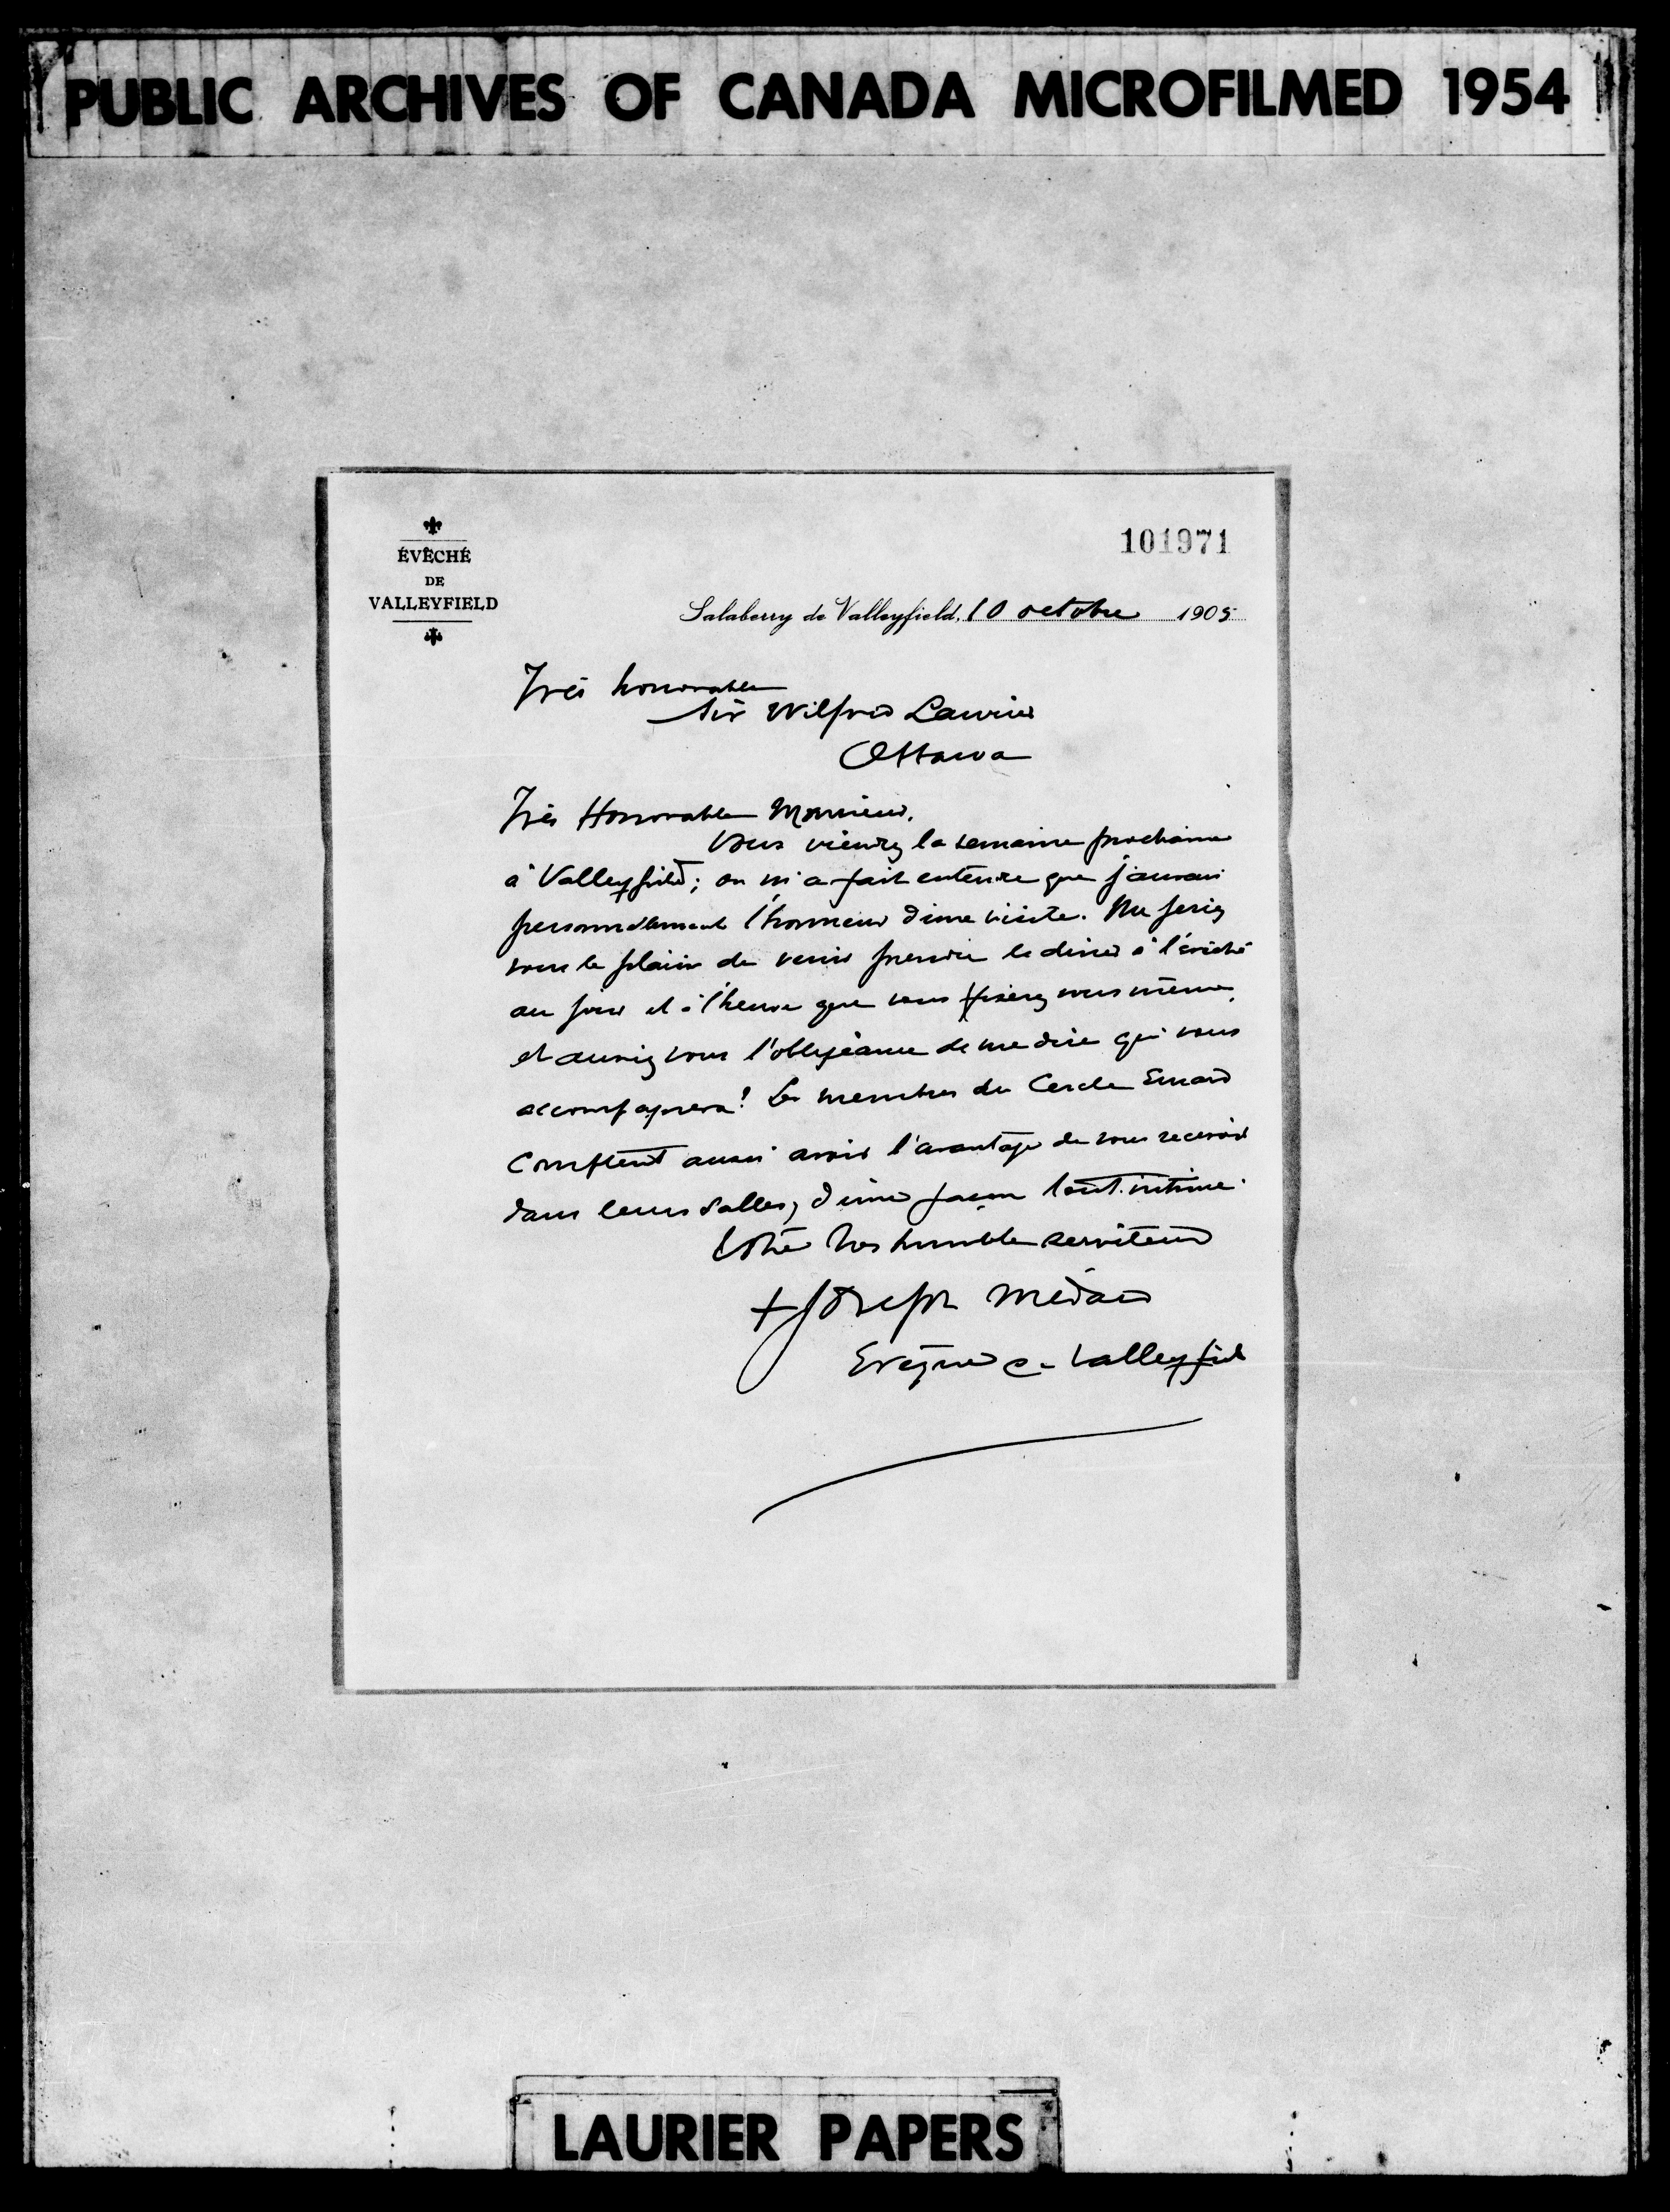 PUBLIC ARCHIVES OF CANADA MICROFILMED 1954
101971
ÉVÊCHÉ
DE
VALLEYFIELD
Salaberry de Valleyfield, 10 octobre 1905
Très honorable
Sir Wilfrid Laurier
Ottawa
Très Honorable Monsieur,
Vous viendrez la semaine prochaine
à Valleyfield; on m'a fait entendre que j'aurais
personnellement l'honneur d'une visite. Me feriez
vous le plaisir de venir prendre le diner à l'évêché
au jour et à l'heure que vous fixerez vous même,
et auriez vous l'obligeance de me dire qui vous
accompagnera? Les membres du Cercle Emard
comptent aussi avoir l'avantage de vous recevoir
dans leurs salles, d'une façon tout intime.
Votre très humble serviteur
+ Joseph Médard
Evêque de Valleyfield
LAURIER PAPERS